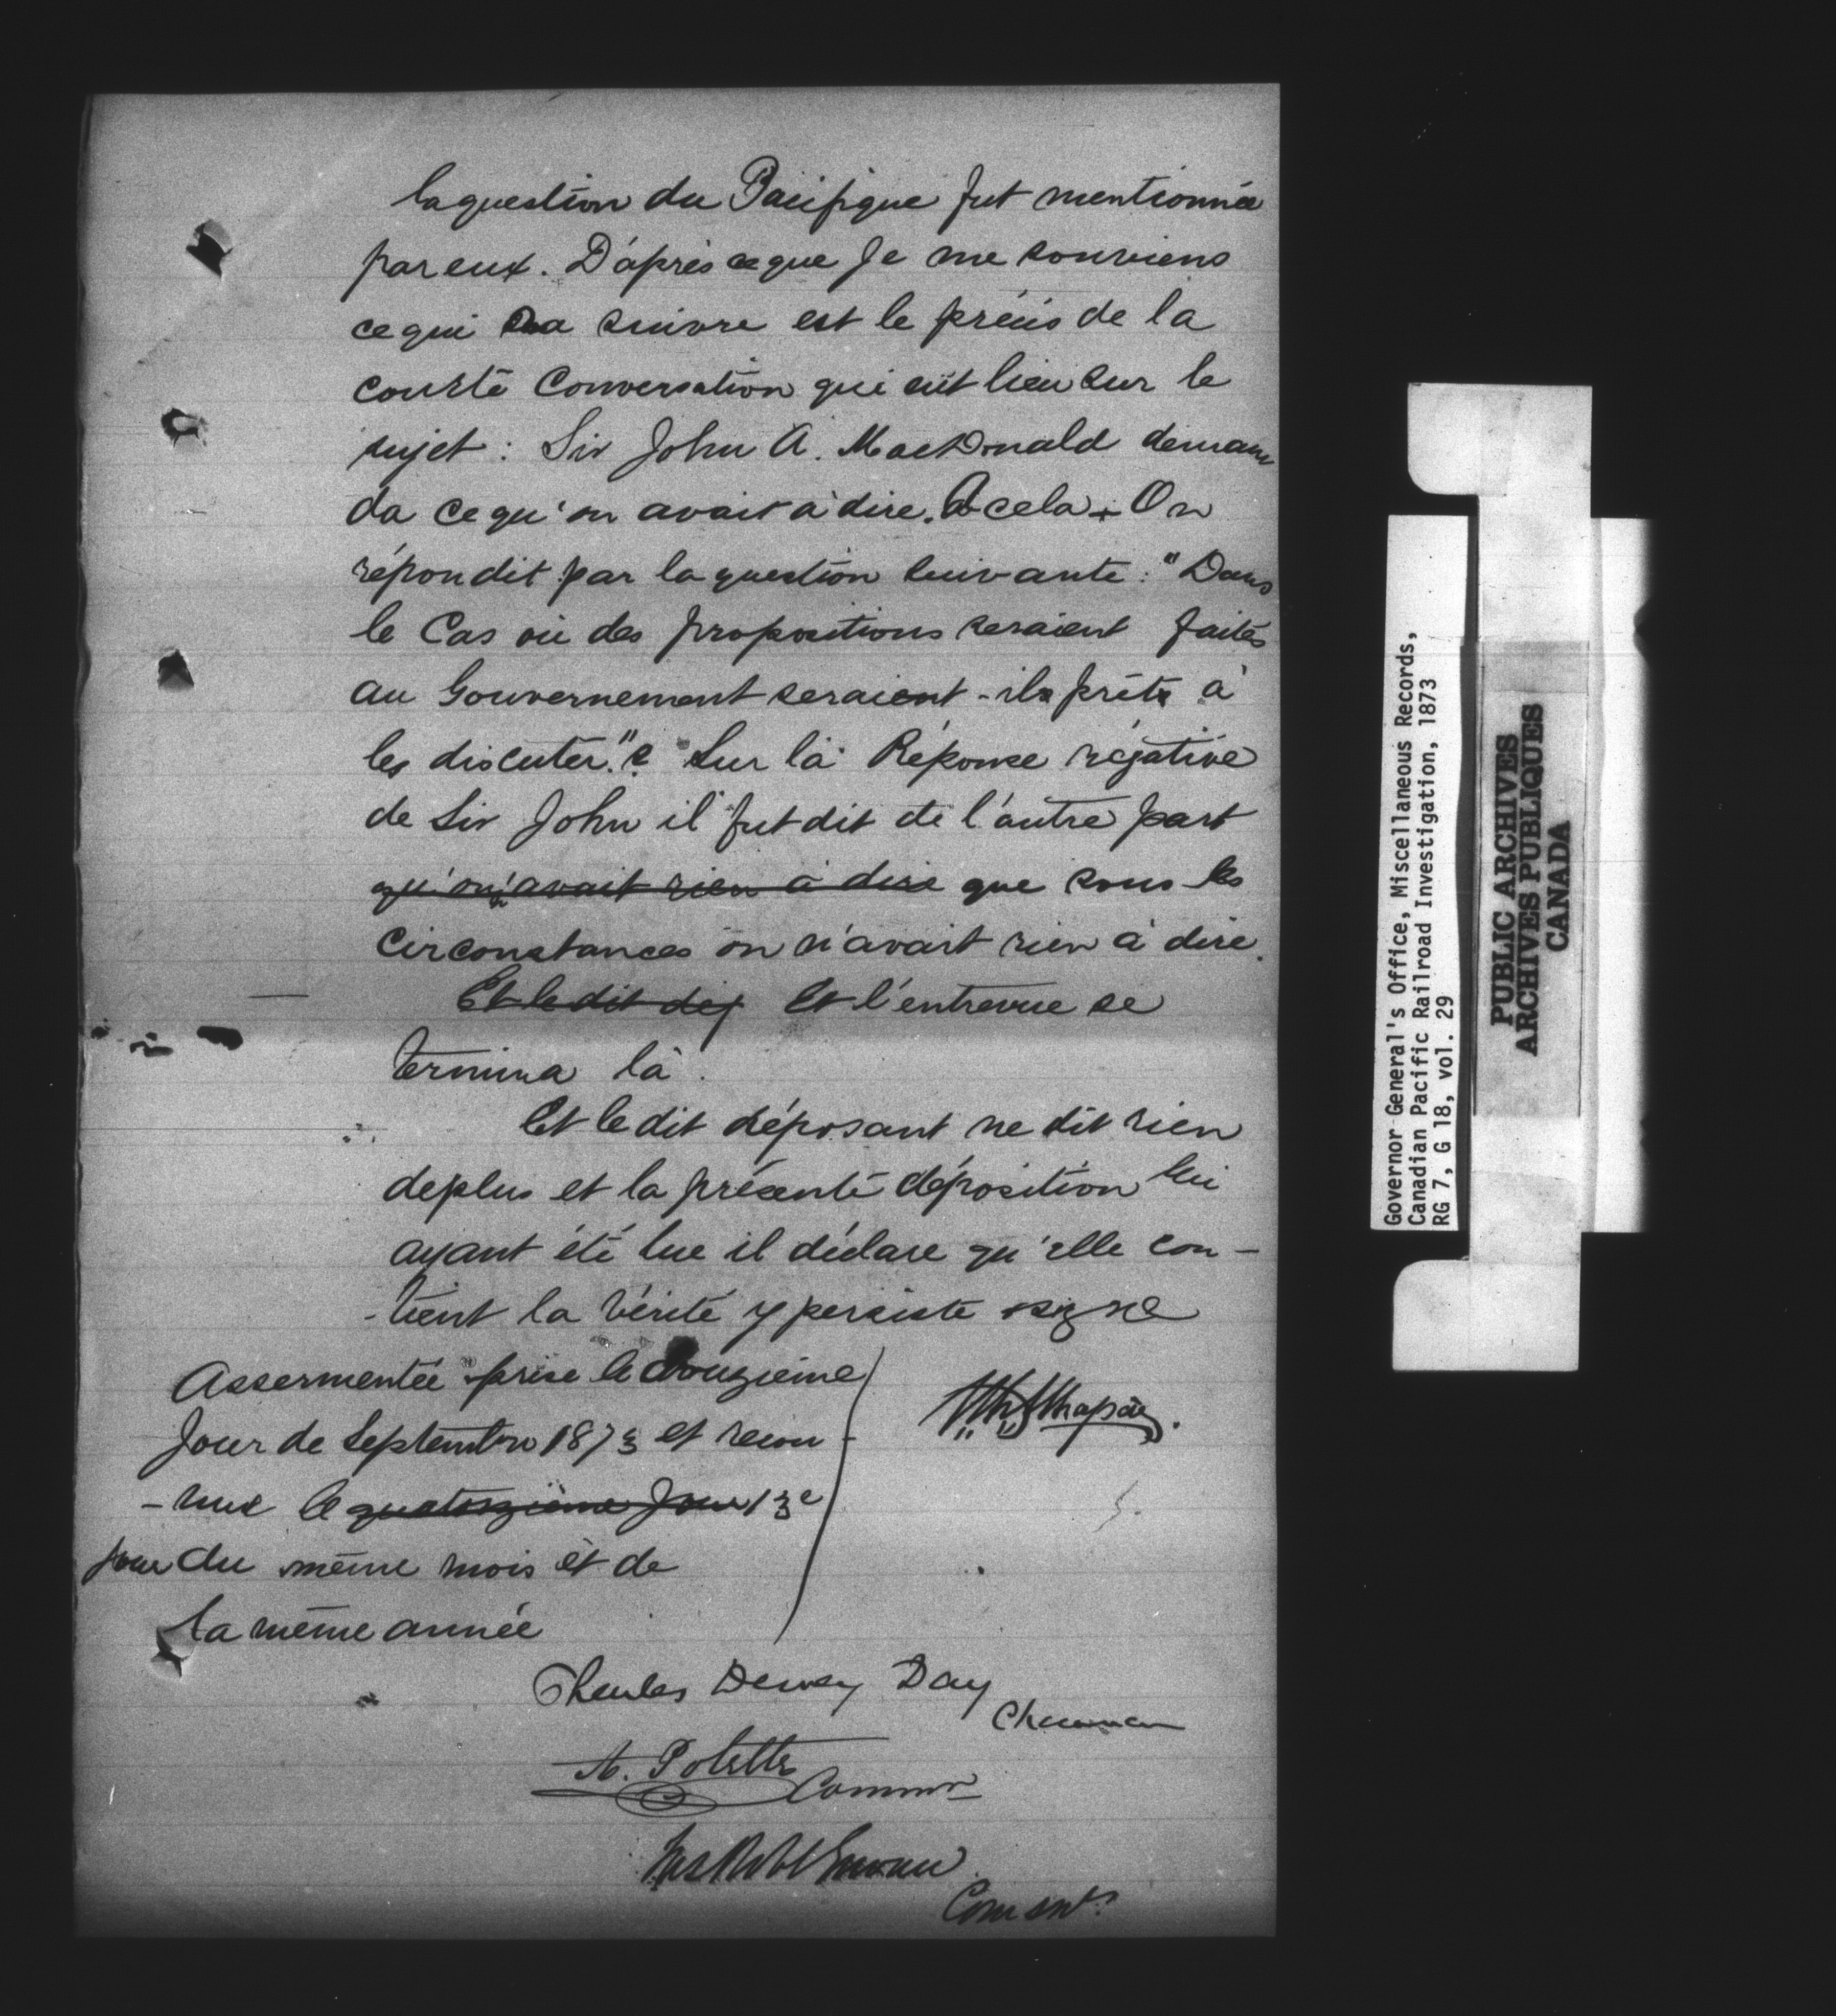 la question du Pacifique fut mentionnée
par eux. D'après ce que Je me souviens
ce qui va suivre est le précis de la
courte Conversation qui eût lieu sur le
sujet : Sir John A. MacDonald deman
da ce qu'on avait à dire. A cela On
répondit par la question suivante : "Dans
le Cas où des propositions seraient faites
au Gouvernement seraient-ils prêts à
les discuter."? Sur la Réponse négative
de Sir John il fut dit de l'autre part
qu'on n'avait rien à dire que sous les
Circonstances on n'avait rien à dire.
Et le dit dép Et l'entrevue se
termina là.
Et le dit déposant ne dit rien
de plus et la présente déposition lui
ayant été lue il déclare qu'elle con-
-tient la vérité y persiste signe
Assermentée prise le douzième
Jour de Septembre 1873 et recon-
-nue le quatorzième Jour 13e
jour du même mois et de
la même année
Charles Dewey Day
Chairman
A. Polette
Commr
Jas Robt Gowan
Comsnr
Governor General's Office, Miscellaneous Records,
Canadian Pacific Railroad Investigation, 1873
RG 7, G 18, vol. 29
PUBLIC ARCHIVES
ARCHIVES PUBLIQUES
CANADA